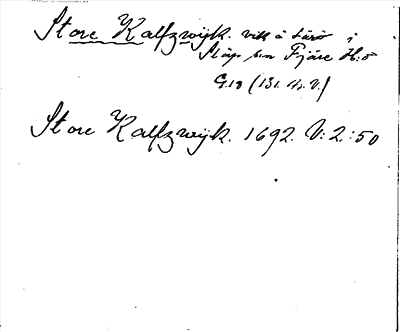 Store Kalfzwijk. vik å i
Släp sn Fjäre H:d
G.18 (131. Hr. V.)
Store Kalfzwijk. 1692. V: 2.:50